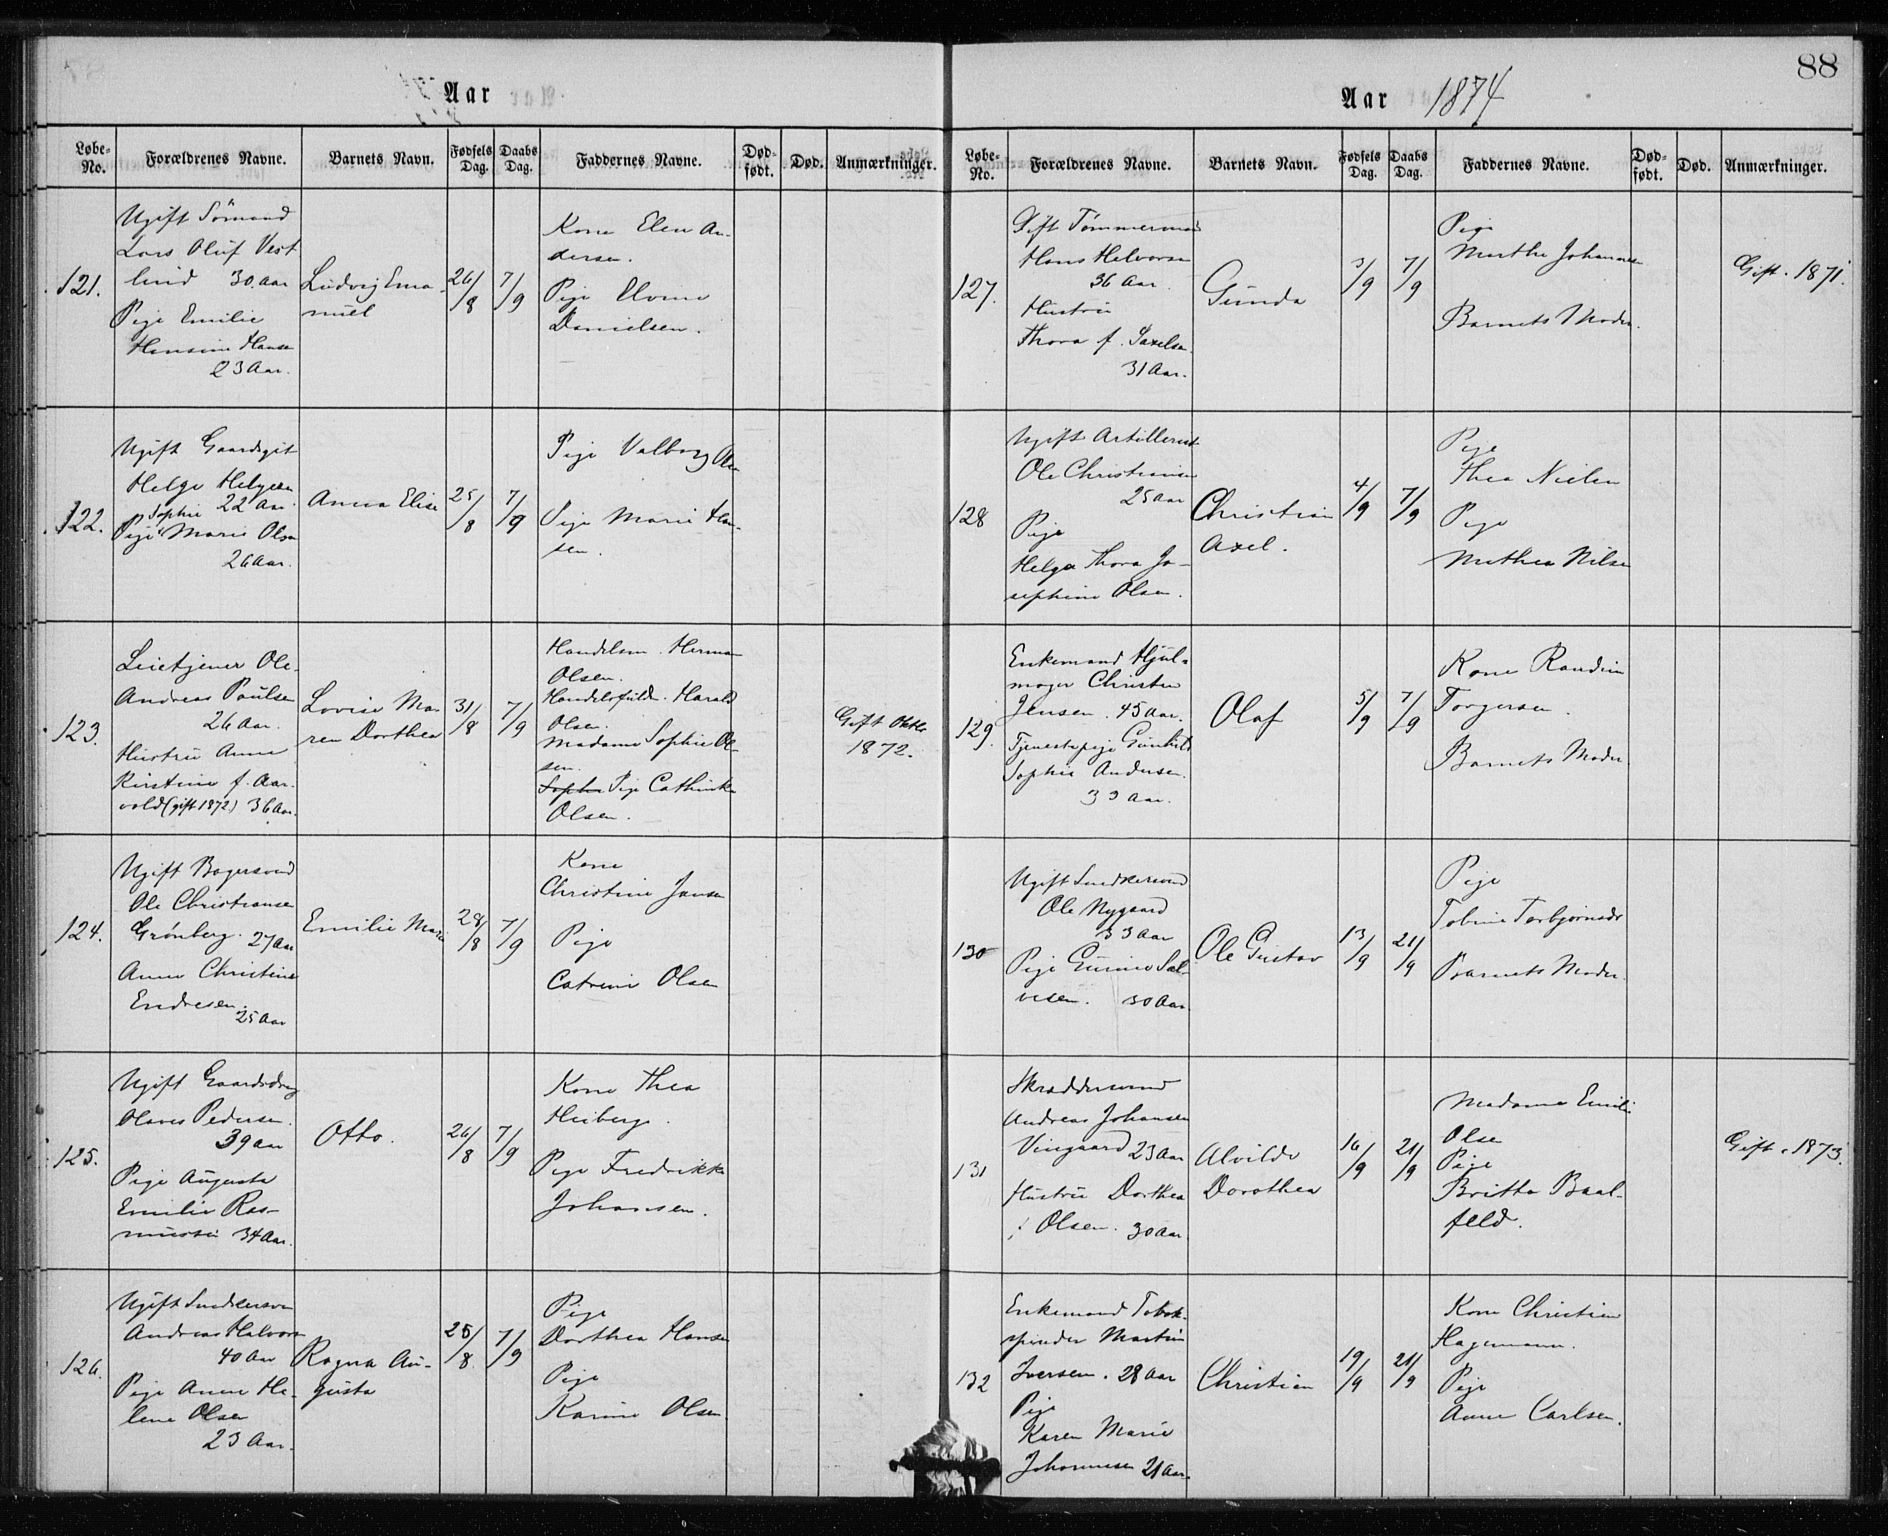 Aar
Løbe-No. Forældrenes Navne. Barnets Navn. Fødsels Dag. Daabs Dag. Faddernes Navne. Død-født. Død. Anmærkninger.
121.
Ugift Sömand
Lars Oluf Vest
lund 30 Aar
Pige Emilie
Hansine Hansen
23 Aar.
Ludvig Ema-
nuel
26/8
7/9
Kone Elen An-
dersen.
Pige
Danielsen.
122.
Ugift Gaardsgut
Helge Helgesen
22 Aar.
Sophie
Pige Marie Olsen
26 Aar.
Anna Elise
25/8
7/9
Pige Valborg Olsen
Pige Marie Han-
sen.
123.
Leietjener Ole
Andreas Paulsen
26 Aar.
Hustru Anne
Kirstine f. Aar-
vold (gift 1872) 36 Aar.
Lovise Ma-
ren Dorthea
31/8
7/9
Handelsm. Herman
Olsen.
Handelsfuldm. Harald
Olsen.
Madame Sophie Ol-
sen.
Sophie Pige Cathinka
Olsen.
Gift Oktbr
1872.
124.
Ugift Bagersvend
Ole Christiansen
Grønberg. 27 Aar
Anne Christine
Endresen.
25 Aar
Emilie Marie
28/8
7/9
Kone
Christine Jansen
Pige
Catrine Olsen
125.
Ugift Gaardsdreng
Olaves Pedersen.
39 Aar
Pige Augusta
Emilie Ras-
mussen 34 Aar.
Otto.
26/8
7/9
Kone Thea
Heiberg.
Pige Fredrikke
Johansen.
126.
Ugift Snedkersven
Andreas Halvorsen
40 Aar
Pige Anne He-
lene Olsen
23 Aar.
Ragna Au-
gusta
25/8
7/9
Pige
Dorthea Hansen
Pige
Karine Olsen.
88
Aar 1874
Løbe-No. Forældrenes Navne. Barnets Navn. Fødsels Dag. Daabs Dag. Faddernes Navne. Død-født. Død. Anmærkninger.
127.
Gift Tømmermand
Hans Halvorsen
36 Aar.
Hustru
Thora f. Saxelsen
31 Aar.
Gunda
3/9
7/9
Pige
Marthe Johannesen
Barnets Moder.
Gift. 1871.
128
Ugift Artillerist
Ole Christiansen
25 Aar
Pige
Helga Thora Jo-
sephine Olsen.
Christian
Axel.
4/9
7/9
Pige
Thea Nielsen
Pige
Mathea Nilsen
129.
Enkemand Hjul-
mager Christen
Jensen. 45 Aar.
Tjenestepige Gunhild
Sophie Andersen.
33 Aar.
Olaf
5/9
7/9
Kone Randine
Torgersen.
Barnets Moder.
130
Ugift Snedkersvend
Ole Nygaard
33 Aar
Pige Gurine Sal-
vesen. 30 Aar.
Ole Gustav
13/9
21/9
Pige
Tobine Torbjørnsdr
Barnets Moder.
131
Skræddersvend
Andreas Johansen
Vingaard 23 Aar
Hustru Dorthea
f. Olsen. 30 Aar.
Alvilde
Dorothea
16/9
21/9
Madame Emilie
Olsen
Pige
Britta Baal-
feld.
Gift. 1873.
132
Enkemand Tobak-
spinder Martin
Iversen. 28 Aar
Pige
Karen Marie
Johannesen 21 Aar.
Christian
19/9
21/9
Kone Christine
Hagemann.
Pige
Anne Carlsen.